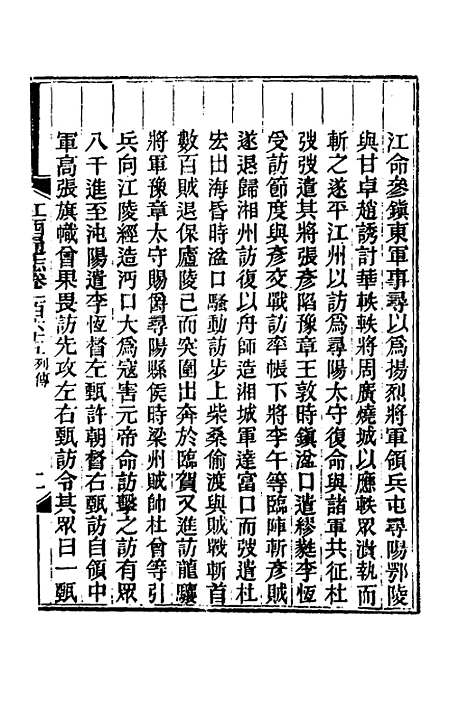 江命參鎮東軍事尋以爲揚烈將軍領兵屯尋陽鄂陵
與甘卓趙誘討華軼軼將周廣燒城以應軼眾潰執而
斬之遂平江州以訪爲尋陽太守復命與諸軍共征杜
弢弢遣其將張彥陷豫章王敦時鎮湓口遣繆蕤李恆
受訪節度與彥交戰訪率帳下將李午等臨陣斬彥賊
遂退歸湘州訪復以舟師造湘城軍達富口而弢遣杜
宏出海昏時湓口騷動訪步上柴桑偷渡與賊戰斬首
數百賊退保廬陵已而突圍出奔於臨賀又進訪龍驤
將軍豫章太守賜爵尋陽縣侯時梁州賊帥杜曾等引
兵向江陵經造沔口大爲寇害元帝命訪擊之訪有眾
八千進至沌陽遣李恆督左甄許朝督右甄訪自領中
軍高張旗幟曾果畏訪先攻左右甄訪令其眾曰一甄
江西通志卷一百六十五列傳